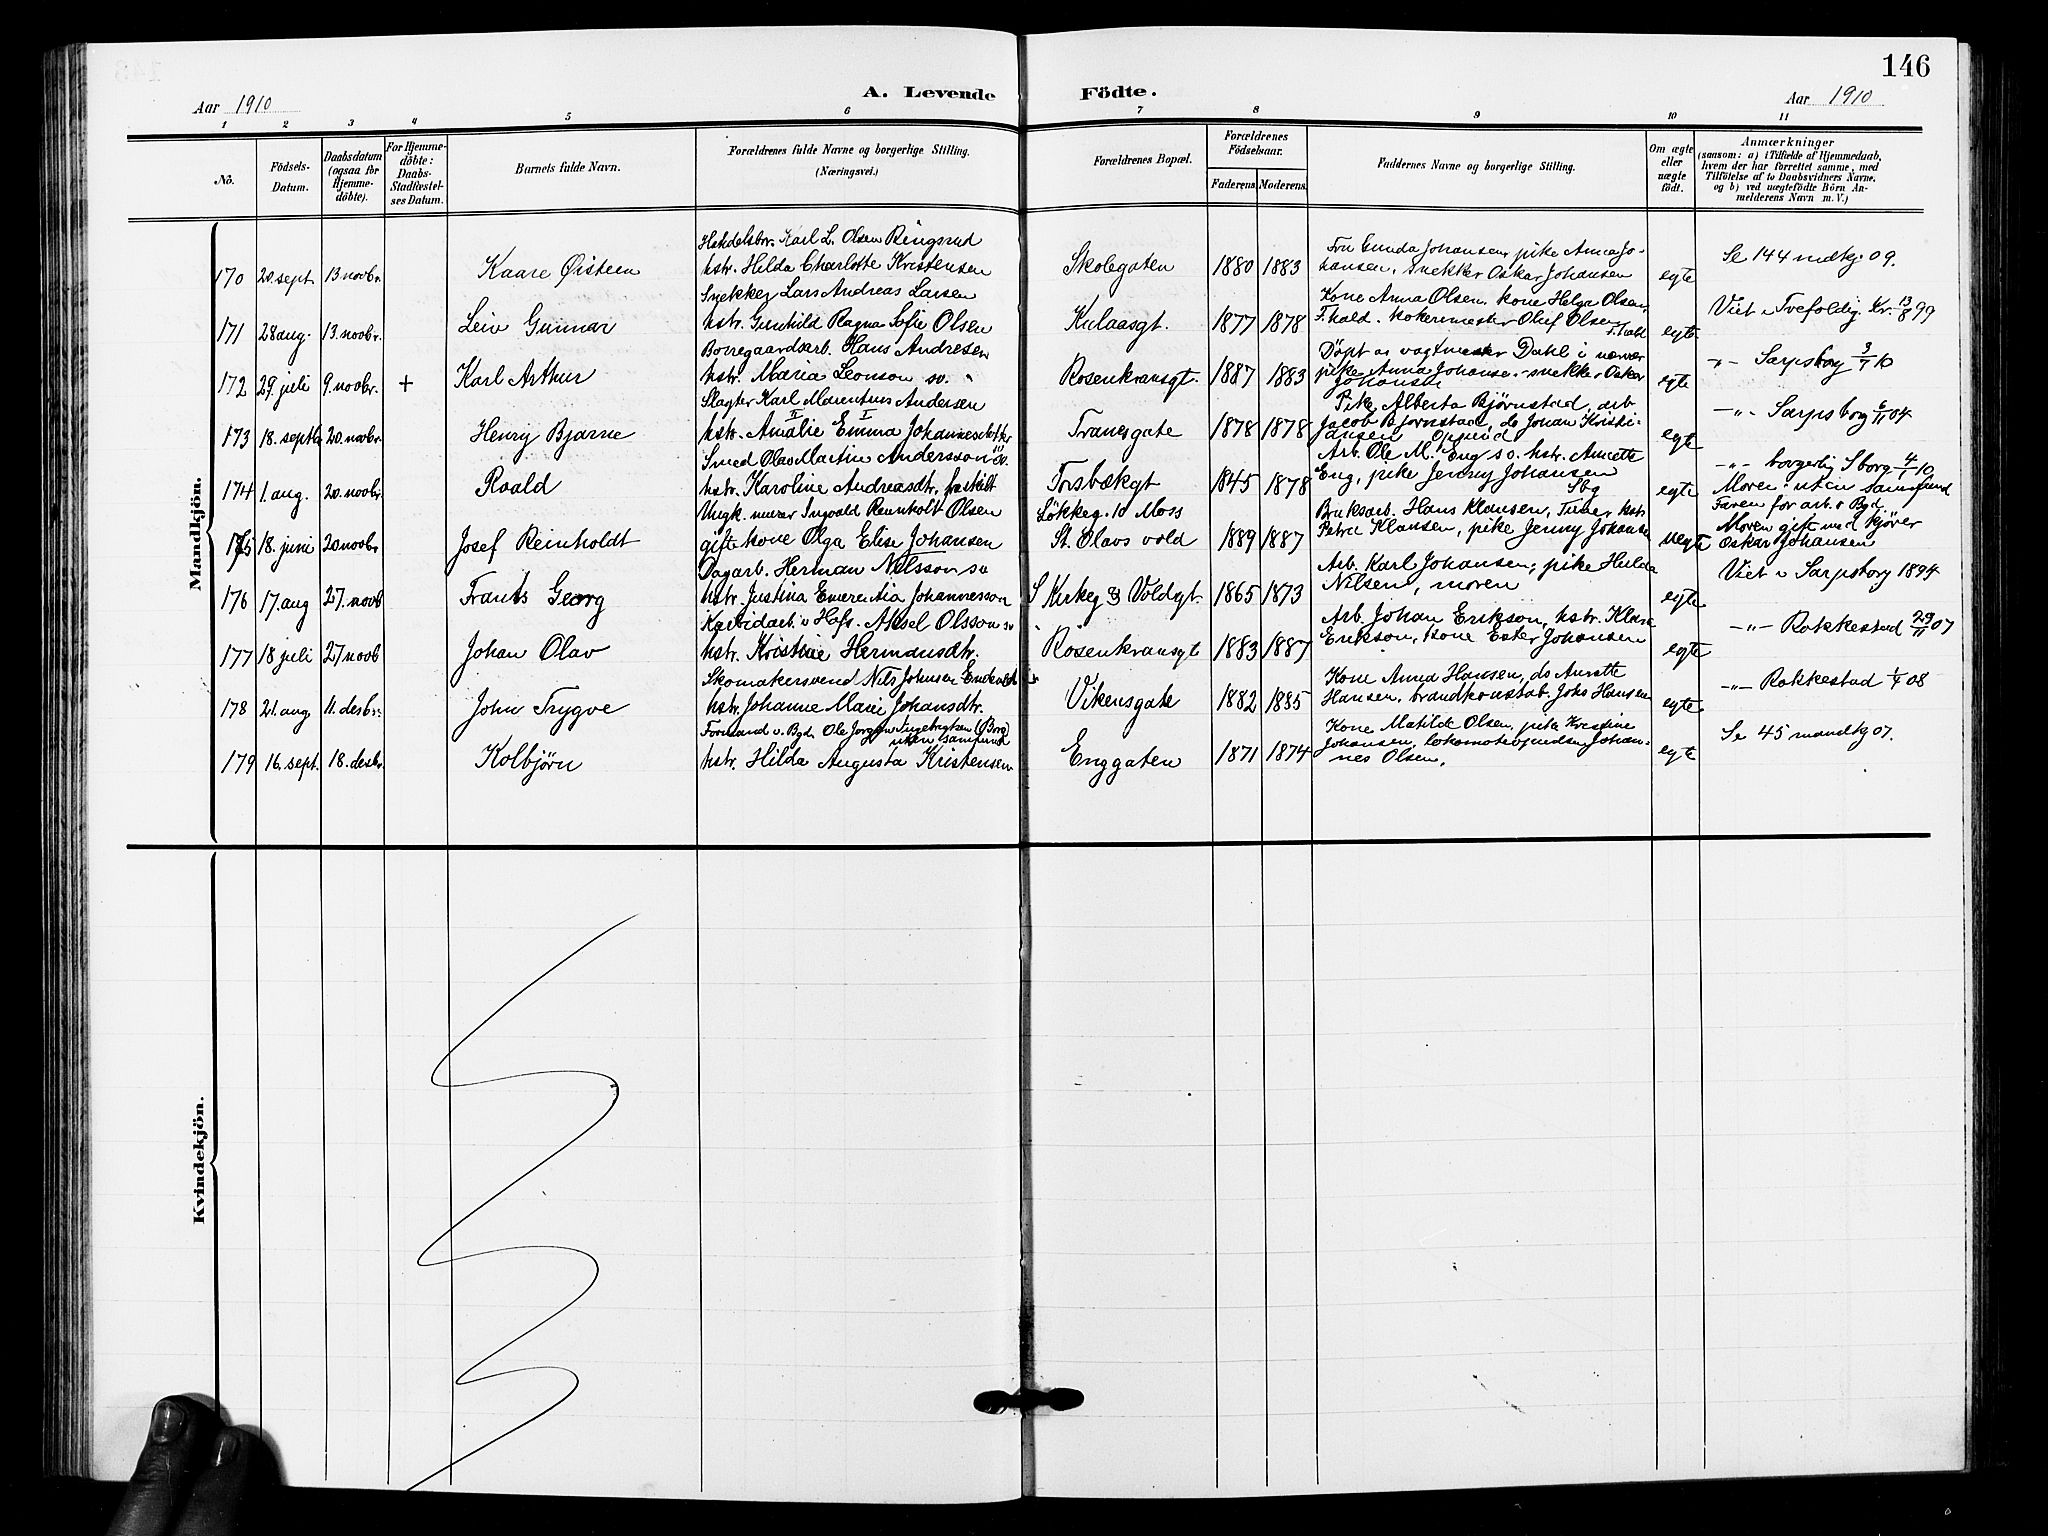 146
Aar 1910
A. Levende Födte.
Aar 1910
1 2 3 4 5 6 7 8 9 10 11
No.
Födsels-Datum.
Daabsdatum (ogsaa for Hjemme-döbte).
For Hjemme-döbte: Daabs-Stadfæstel-ses Datum.
Barnets fulde Navn.
Forældrenes fulde Navne og borgerlige Stilling.
(Næringsvei.)
Forældrenes Bopæl.
Forældrenes Födselsaar.
Faderens. Moderens.
Faddernes Navne og borgerlige Stilling.
Om ægte eller uægte födt.
Anmærkninger
(saasom: a) i Tilfælde af Hjemmedaab,
hvem der har forrettet samme, med
Tilföielse af to Daabsvidners Navne.
og b) ved uægtefödte Börn An-
melderens Navn m. V.)
Mandkjön.
Handelsbr. Karl L. Olsen Ringsrud
170 20. sept. 13 novbr. Kaare Øisteen hstr. Hilda Charlotte Kristensen Skolegaten 1880 1883 Fru Gunda Johansen, pike Anna Jo-
hansen, snekker Oskar Johansen egte Se 144 mdkj. 09.
Snekker Lars Andreas Larsen
171 28 aug. 13. novbr. Leiv Gunnar hstr. Gunhild Ragna Sofie Olsen Kulaasgt. 1877 1878 Kone Anna Olsen, kone Helga Olsen,
F.hald. kokermester Oluf Olsen F.hald egte. Viet i Tvefoldig. Kr. 13/8 99
Borregaardsarb. Hans Andresen
172 29. juli 9. novbr. + Karl Arthur hstr. Maria Leonson sv. Rosenkransgt. 1887 1883 Döpt av vagtmester Dahl i nærvær
pike Anna Johanse. snekker Oskar
Johansen egte -"- Sarpsborg 3/7 10
Slagter Karl Marentius Andersen
173 18. septb 20. novbr. Henry Bjarne hstr. Amalie II Emma I Johannesdatter Tranesgate 1878 1878 Pike Alberta Bjørnstad, arb
Jacob Bjørnstad, do Johan Kristi-
ansen Opprud egte -"- Sarpsborg 6/11 04
Smed Olav Martin Andersson sv.
174 1. aug. 20. novbr. Roald hstr. Karoline Andreasdtr. fraskilt Torsbækgt 1845 1878 Arb. Ole M. Eng s.o. hstr. Annette
Eng, pike Jenny Johansen Sbg egte -"- borgerlig Sborg 4/1 10
Moren: uten samfund
Ungk. murer Ingvald Reinholt Olsen Løkkeg. 10 Moss
175 18. juni 20 novbr Josef Reinholdt gifte kone Olga Elise Johansen St. Olavs vold 1889 1887 Bruksarb. Hans Klausen, Tuner hstr.
Petra Klausen, pike Jenny Johanse uegte Faren for arb. v Bgd.
Moren gift med kjører
Oskar Johansen
Dagarb. Herman Nilsson sv
176 17. aug 27. novb Frants Georg hstr. Justina Emerentia Johannesson S Kirkeg & Voldgt. 1865 1873 Arb. Karl Johansen; pike Hulda
Nilsen, moren egte Viet i Sarpsborg 1894
Karbidarb. v Hafs. Aksel Olsson sv
177 18 juli 27 novb Johan Olav hstr. Kristine Hermansdtr. Rosenkransgt 1883 1887 Arb. Johan Erikson, hstr. Klara
Erikson, kone Ester Johansen egte -"- Rakkestad 29/11 07
Skomakersvend Nils Johnsen
178 21. aug 11. desbr. John Trygve hstr. Johanne Marie Johansdtr. Vikensgate 1882 1885 Kone Anna Hansen, do Anette
Hansen, brandkonstab. Johs Hansen egte -"- Rakkestad 1/1 08
Formand v. Bgd Ole Jørgen Ingebrigtsen (Borg) uten samfund
179 16. sept. 18. desbr. Kolbjørn hstr. Hilda Augusta Kristensen Enggaten 1871 1874 Kone Matilde Olsen, pike Kristine
Johansen, lokomotivpudser Johan-
nes Olsen. egte Se 45 mandkj 07.
Kvindekjön.